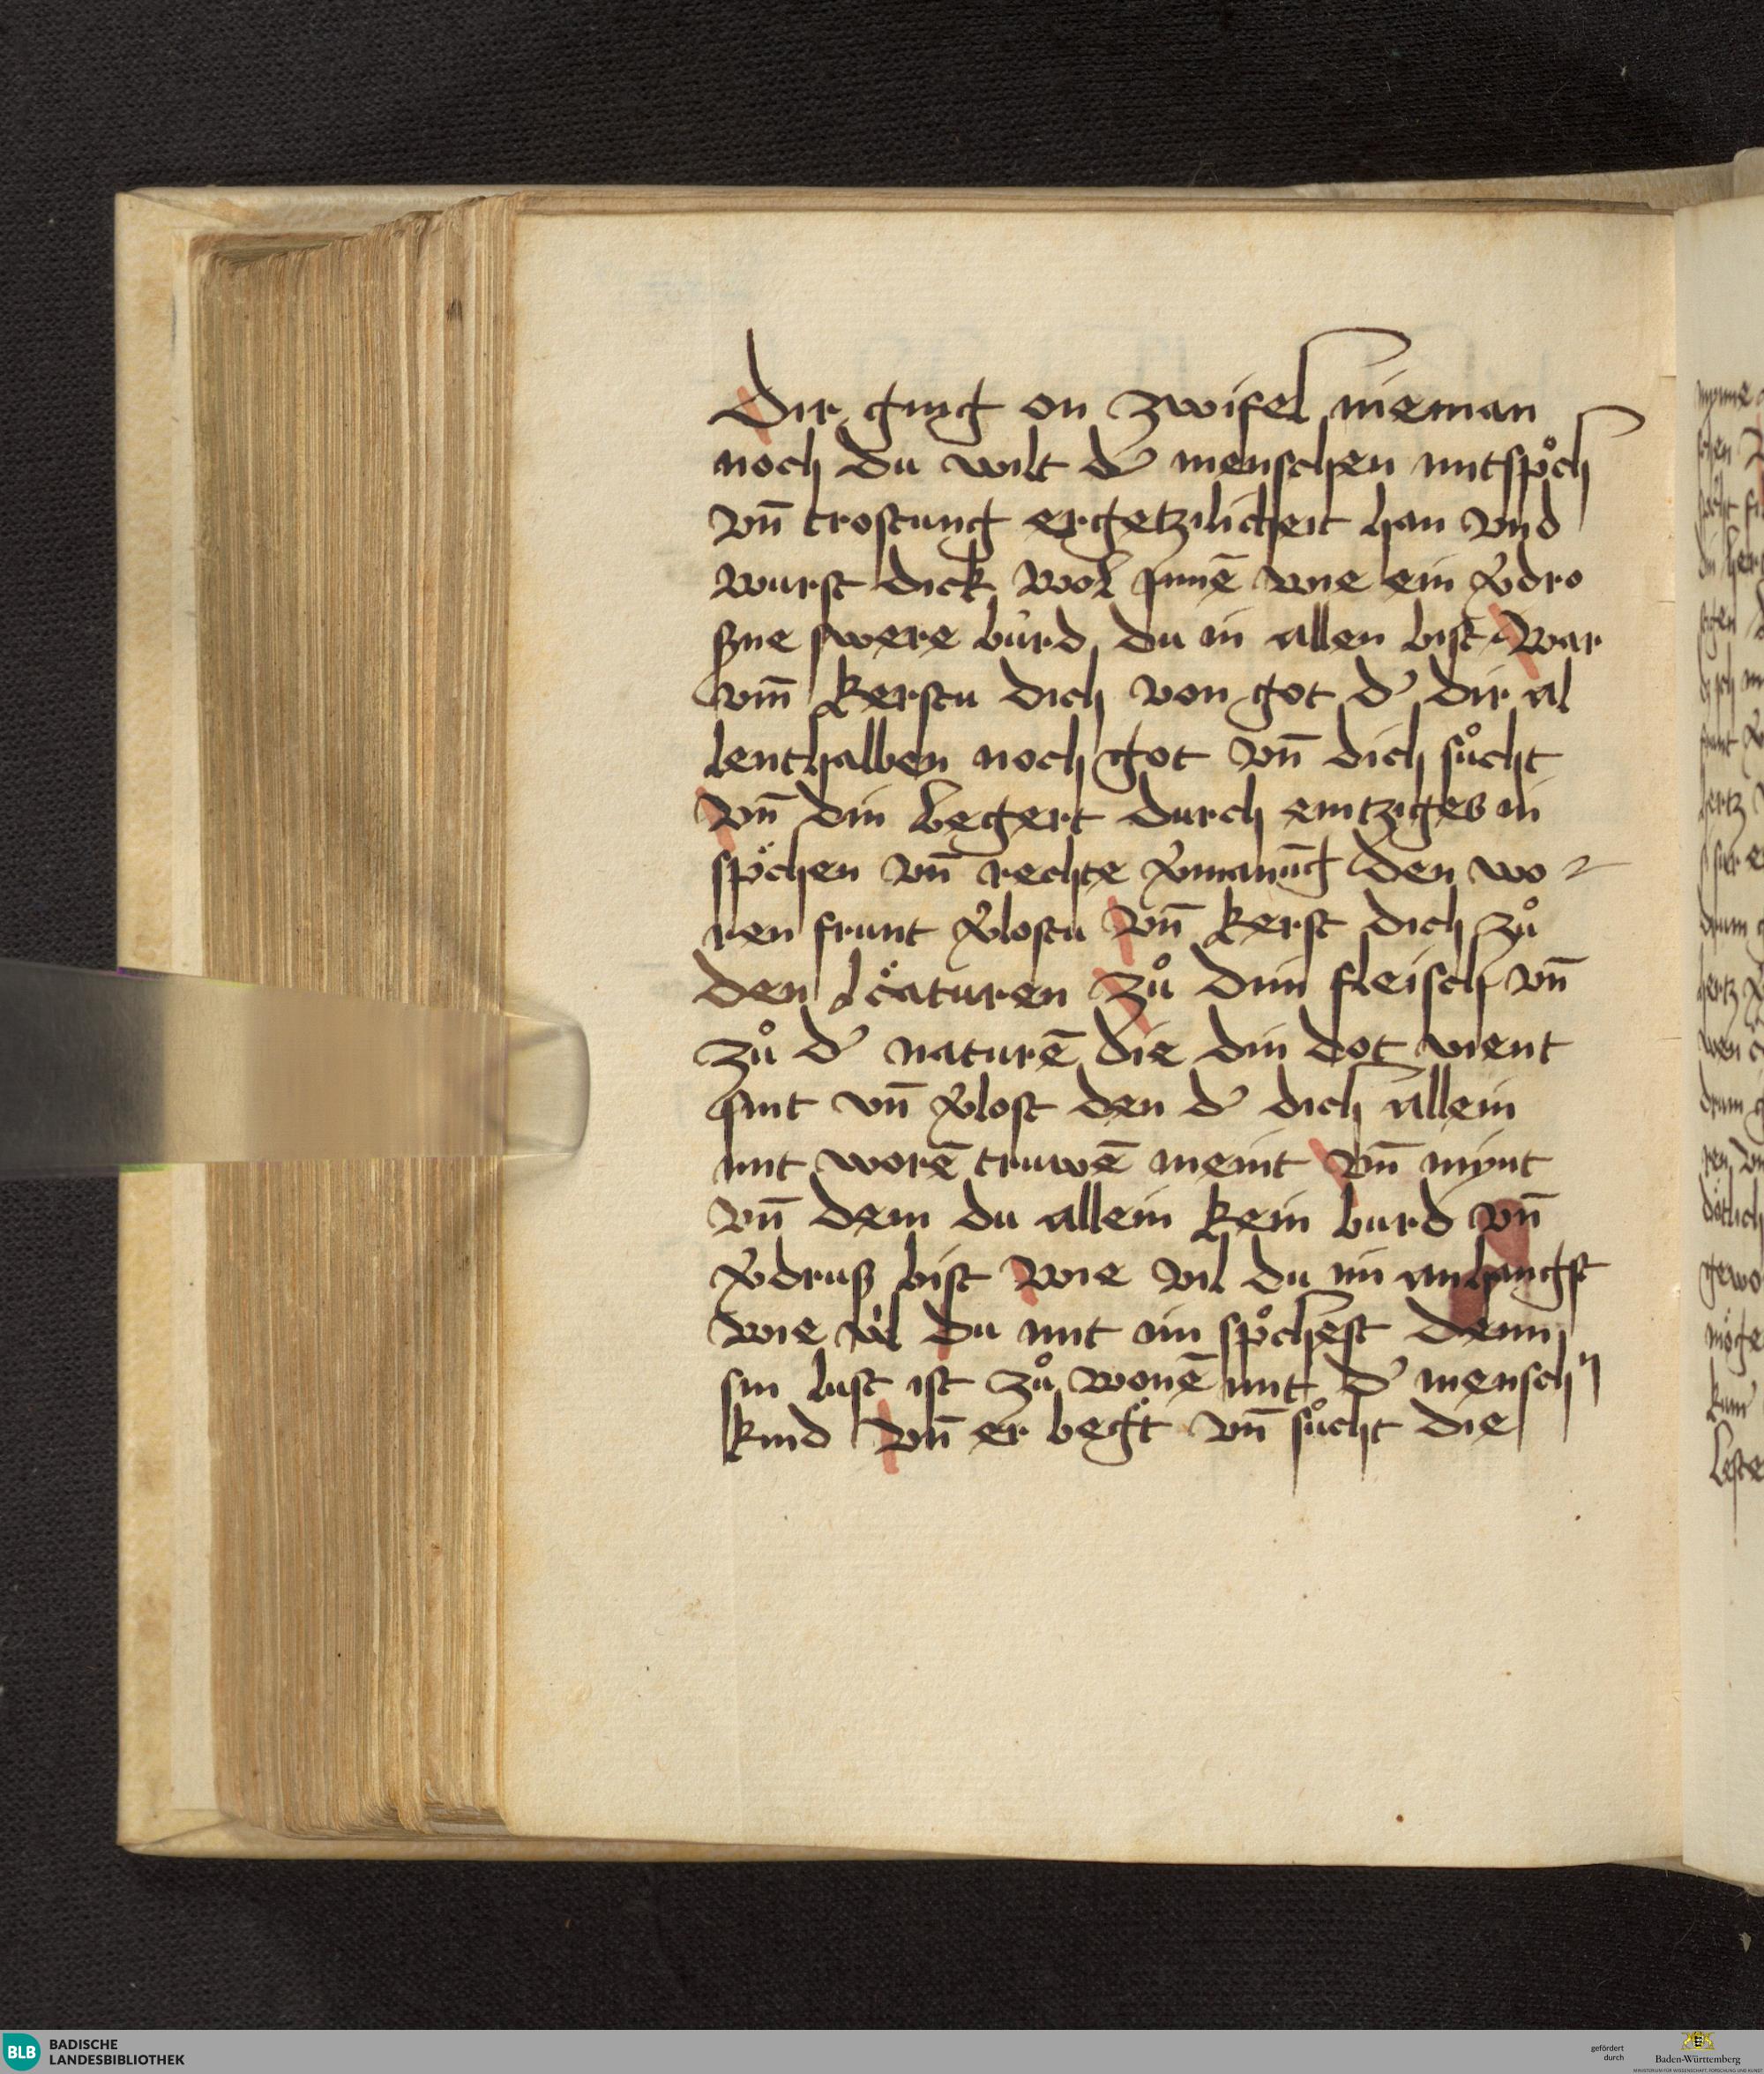 Dir ging on zwifel nieman
noch du wilt d' menschen mitspͦch
vn̄ trostung ergetzlicheit han vnd
wurst dick wol jnnē wie ein v̓dro
ßne swere bu̍rd du in allen bist War
vm̄ kerstu dich von got d' dir al
lenthalben noch got vn̄ dich sůcht
vn̄ din begert durch emtziges in
spͦchen vn̄ rechte v̓manūg den wo
ren frunt v̓lostu vn̄ kerst dich zů
den cͦaturen zů dim fleisch vn̄
zů d' naturē die din dot vient
sint vn̄ v̓lost den d' dich allein
mit worē truwē meint vn̄ mynt
vn̄ dem du allein kein burd vn̄
v̓druß bist wie vil du im anhangst
wie vil du mit im spͦchest denn
sin lust ist zů wonē mit d' mensch
kind vn̄ er begͦt vn̄ sůcht die
BLB BADISCHE
LANDESBIBLIOTHEK
gefördert
durch
Baden-Württemberg